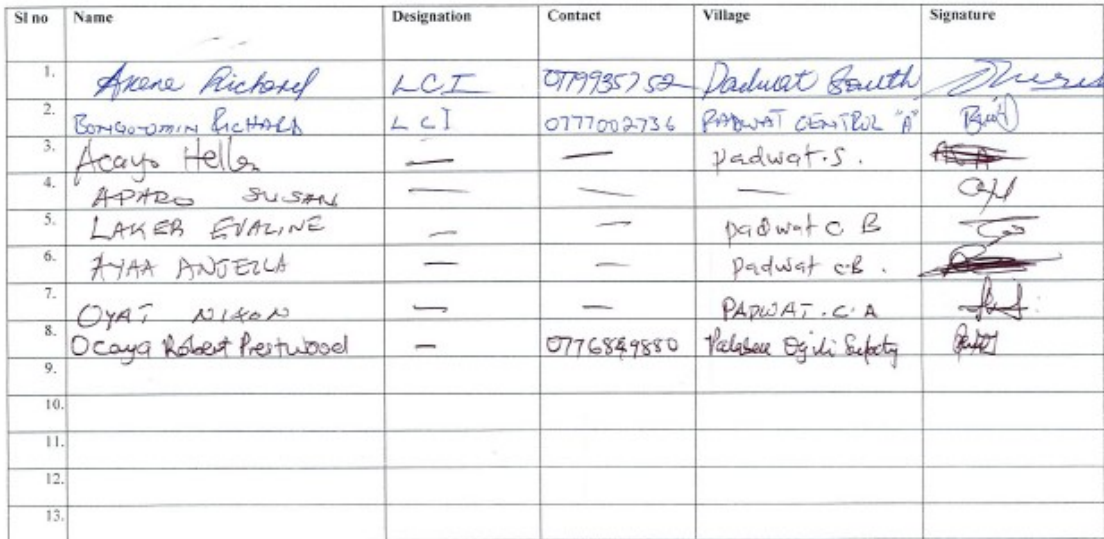 Sl no Name Designation Contact Village Signature
1. Akena Richard LCI 0779935752 Padwat South
2. BONGOOMIN RICHARD LCI 0777002736 PADWAT CENTRUL "A"
3. Acayo Hellen — — padwat.S.
4. APARO SUSAN — — —
5. LAKER EVALINE — — padwat C B
6. AYAA ANJELLA — — Padwat C.B.
7. OYAT NIXON — — PADWAT.C.A
8. Ocaya Robert Prestwood — 0776849880 Ogili
9.
10.
11.
12.
13.